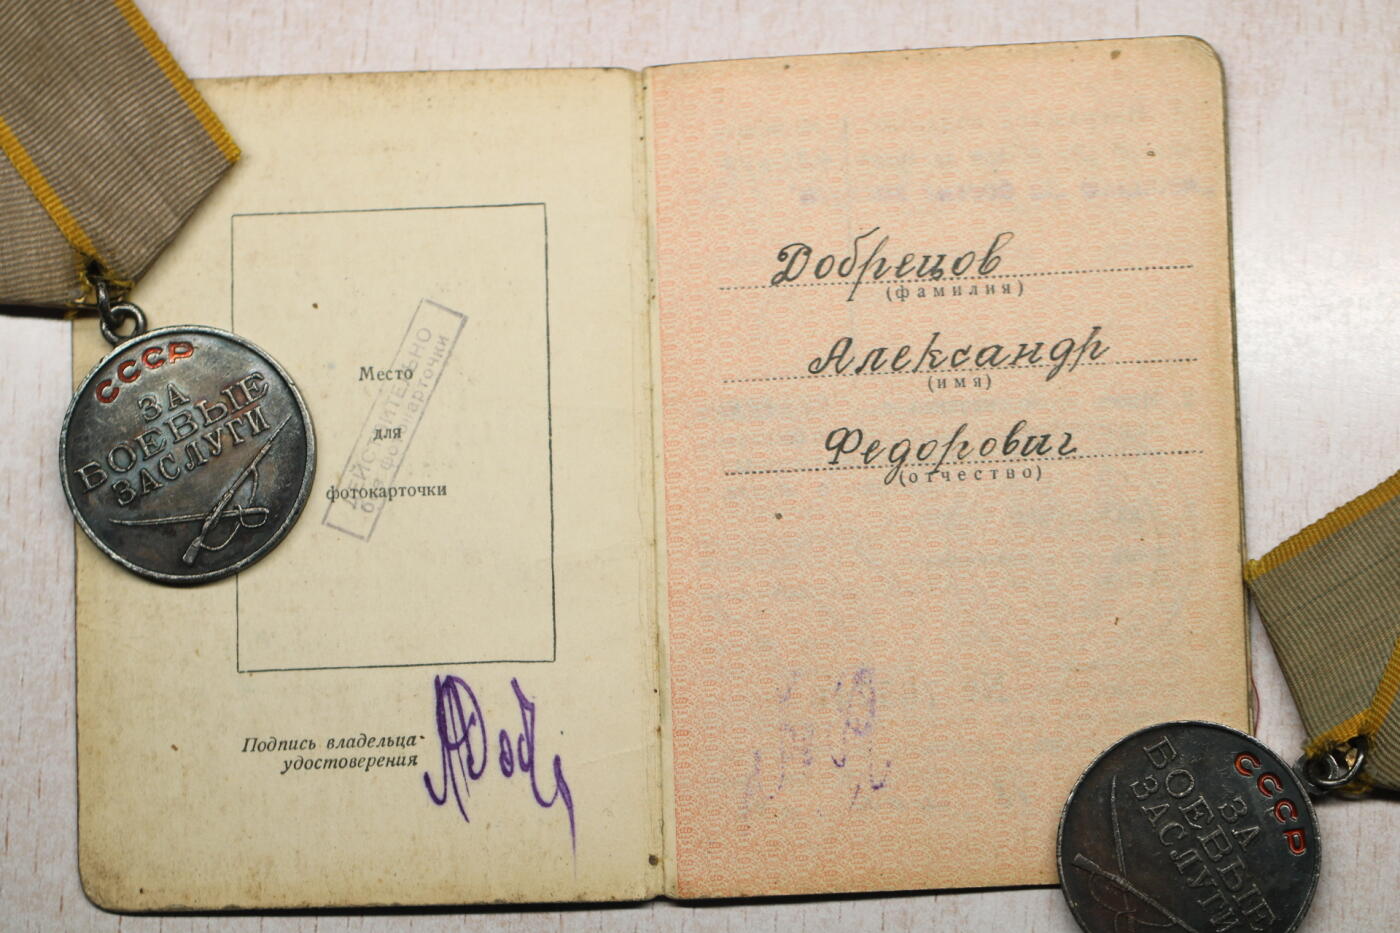 СССР
ЗА
БОЕВЫЕ
ЗАСЛУГИ
Место
для
фотокарточки
ДЕЙСТВИТЕЛЬНО
без фотокарточки
Подпись владельца
удостоверения
Добрецов
(фамилия)
Александр
(имя)
Федорович
(отчество)
СССР
ЗА
БОЕВЫЕ
ЗАСЛУГИ